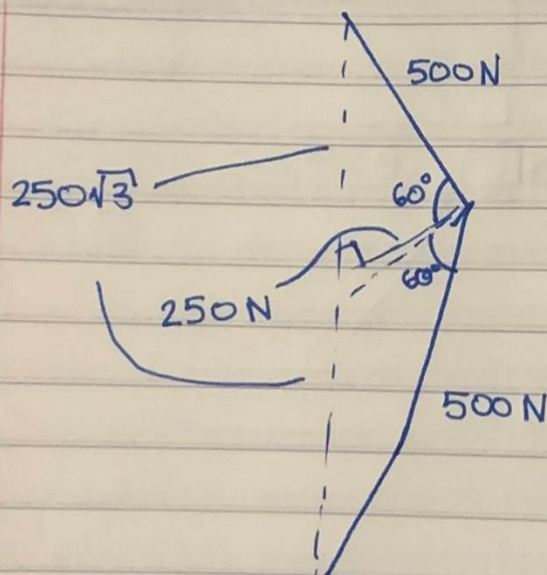 500N
250√3
60°
60°
250N
500N